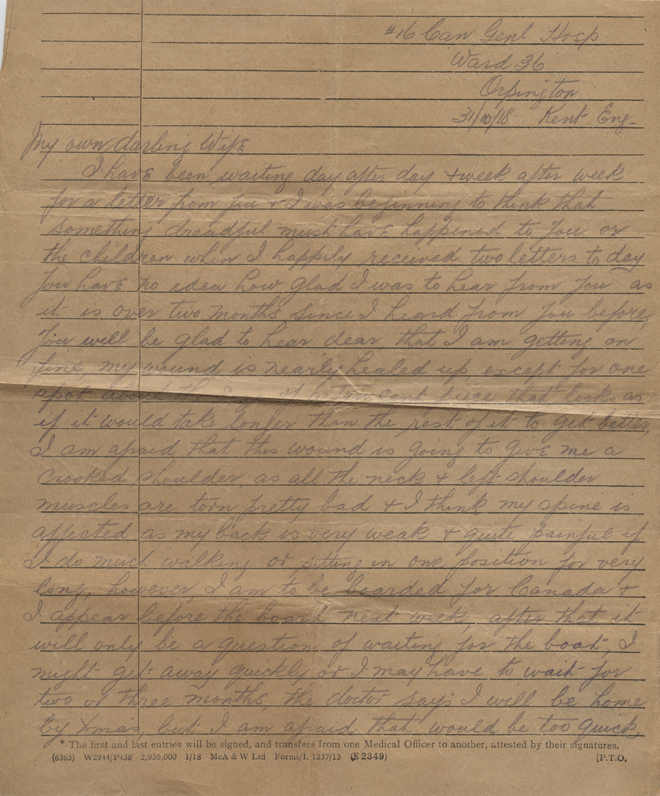 #16 Can Genl Hosp
Ward 36
Orpington
31/10/18 Kent Eng-
My own darling Wife
I have been waiting day after day & week after week
for a letter from you & I was beginning to think that
something dreadful must have happened to you or
the children when I happily received two letters to day
You have no idea how glad I was to hear from you as
it is over two months since I heard from you before,
You will be glad to hear dear, that I am getting on
fine, my wound is nearly healed up except for one
spot about the size of a cent piece that looks as
if it would take longer than the rest of it to get better,
I am afraid that this wound is going to give me a
crooked shoulder, as all the neck & left shoulder
muscles are torn pretty bad & I think my spine is
affected as my back is very weak & quite painful if
I do much walking or sitting in one position for very
long, however, I am to be boarded for Canada &
I appear before the board next week, after that it
will only be a question of waiting for the boat, I
might get away quickly or I may have to wait for
two or three months, the doctor says I will be home
by Xmas, but I am afraid that would be too quick,
* The first and last entries will be signed, and transfers from one Medical Officer to another, attested by their signatures.
(6365) W2944/P458 2,950,000 1/18 McA & W Ltd Forms/I. 1237/13 (E 2349) [P.T.O.